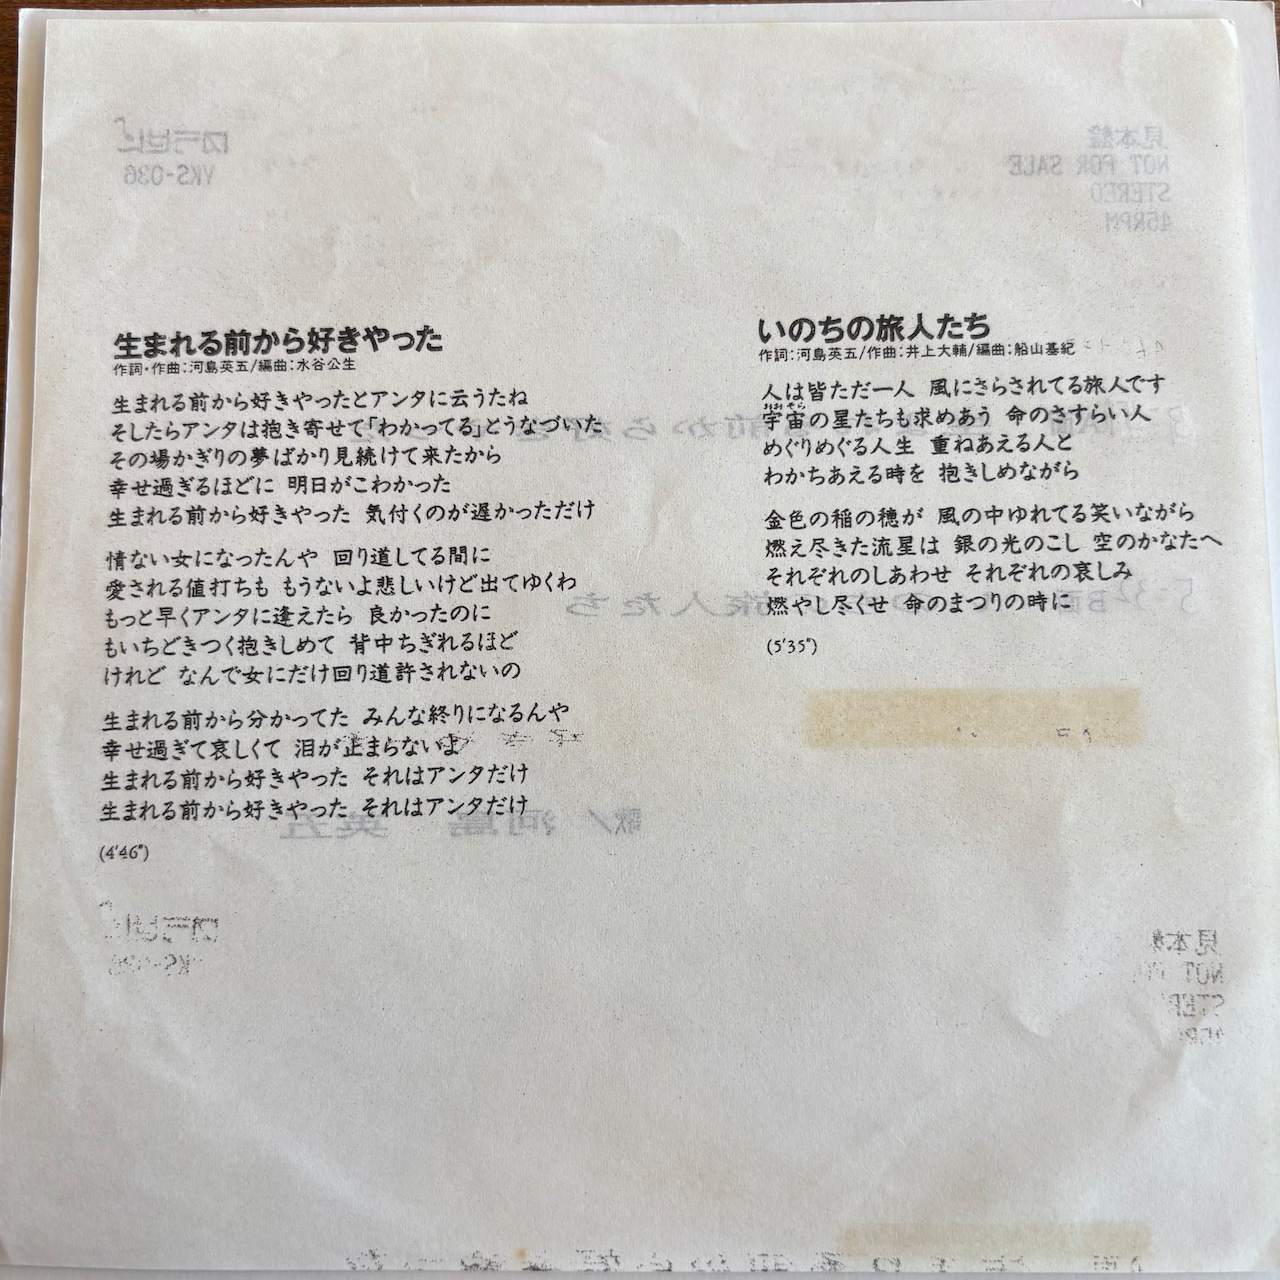 見本盤
NOT FOR SALE
STEREO
45RPM
YKS-036
生まれる前から好きやった
作詞・作曲:河島英五/編曲:水谷公生
生まれる前から好きやったとアンタに云うたね
そしたらアンタは抱き寄せて「わかってる」とうなづいた
その場かぎりの夢ばかり見続けて来たから
幸せ過ぎるほどに 明日がこわかった
生まれる前から好きやった 気付くのが遅かっただけ
情ない女になったんや 回り道してる間に
愛される値打ちも もうないよ悲しいけど出てゆくわ
もっと早くアンタに逢えたら 良かったのに
もいちどきつく抱きしめて 背中ちぎれるほど
けれど なんで女にだけ回り道許されないの
生まれる前から分かってた みんな終りになるんや
幸せ過ぎて哀しくて 泪が止まらないよ
生まれる前から好きやった それはアンタだけ
生まれる前から好きやった それはアンタだけ
(4'46")
いのちの旅人たち
作詞:河島英五/作曲:井上大輔/編曲:船山基紀
人は皆ただ一人 風にさらされてる旅人です
おおぞら
宇宙の星たちも求めあう 命のさすらい人
めぐりめぐる人生 重ねあえる人と
わかちあえる時を 抱きしめながら
金色の稲の穂が 風の中ゆれてる笑いながら
燃え尽きた流星は 銀の光のこし 空のかなたへ
それぞれのしあわせ それぞれの哀しみ
燃やし尽くせ 命のまつりの時に
(5'35")
歌/河島 英五